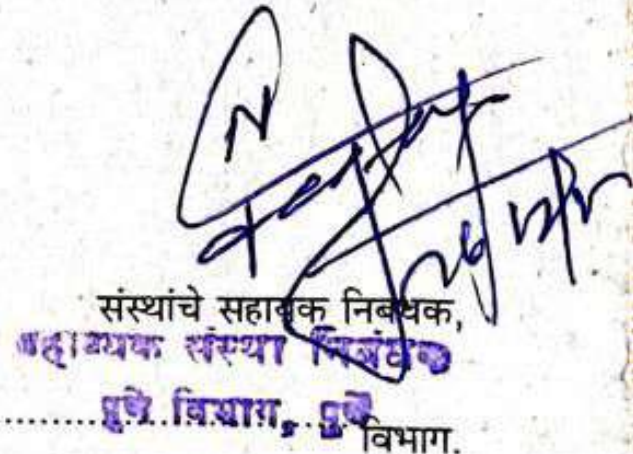 संस्थांचे सहायक निबंधक,
सहाय्यक संस्था निबंधक
पुणे विभाग, पुणे
..................विभाग.